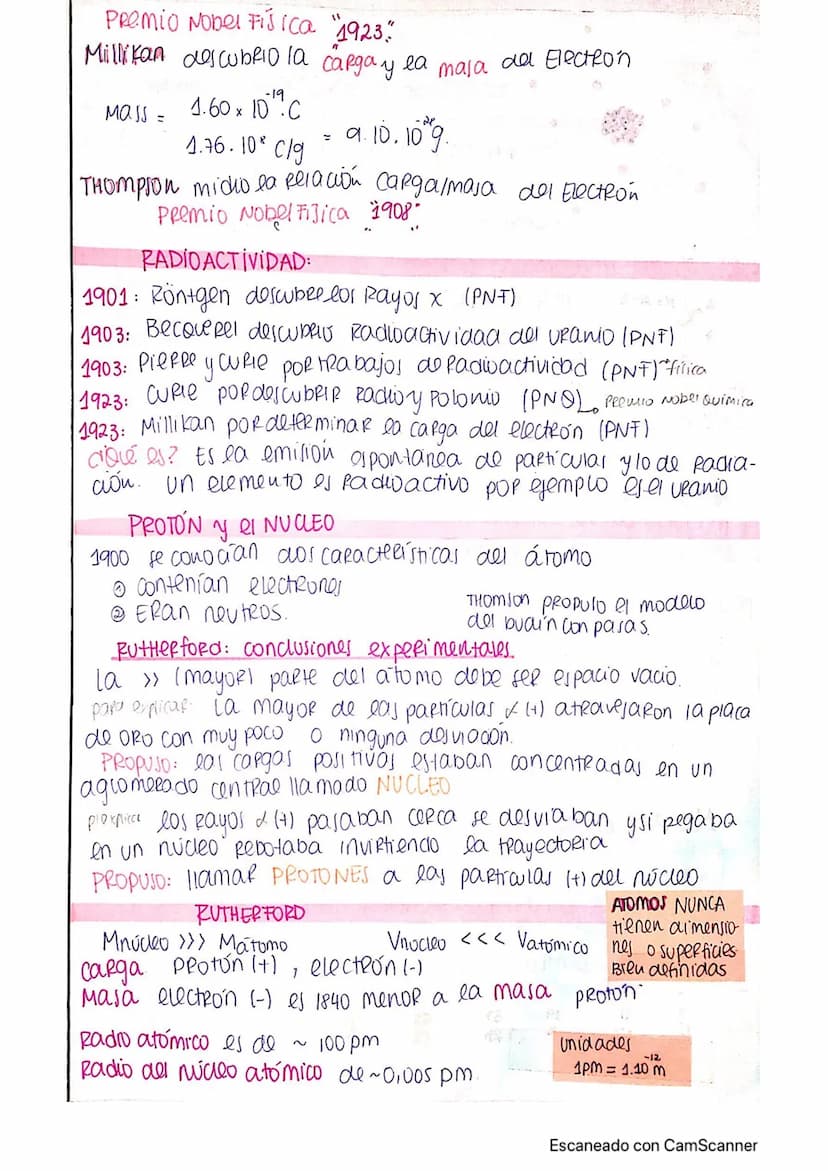 Premio Nobel Física "1923."
Millikan descubrio la carga y la masa del Electrón
Mass = 1.60 x 10⁻¹⁹ C
1.76 . 10⁸ C/g = 9.10.10⁻²⁸ g.
THOMPSON midio la relación carga/masa del Electrón
Premio Nobel Física "1908"
RADIOACTIVIDAD:
1901: Röntgen descubre los Rayos X (PNF)
1903: Becquerel descubrio Radioactividad del uranio (PNF)
1903: Pierre y Curie por trabajos de Radioactividad (PNF) Física
1923: Curie por descubrir Radio y Polonio (PNQ) Premio Nobel Química
1923: Millikan por determinar la carga del electrón (PNF)
¿Qué es? Es la emisión espontánea de partículas y/o de Radia-
ción. Un elemento es Radioactivo por ejemplo es el uranio
PROTÓN y el NUCLEO
1900 se conocían dos características del átomo
① contenían electrones
② Eran neutros.
THOMSON propuso el modelo
del budín con pasas.
Rutherford: conclusiones experimentales.
La >> (mayor) parte del átomo debe ser espacio vacio.
para explicar: La mayor de las partículas α (+) atravesaron la placa
de oro con muy poco o ninguna desviación.
PROPUSO: las cargas positivas estaban concentradas en un
aglomerado central llamado NUCLEO
los rayos α (+) pasaban cerca se desviaban y si pegaba
en un núcleo rebotaba invirtiendo la trayectoria
PROPUSO: llamar PROTONES a las partículas (+) del núcleo
RUTHERFORD
ATOMOS NUNCA
tienen dimensio-
nes o superficies
Bien definidas
Mnúcleo >>> Mátomo Vnucleo <<< Vatómico
Carga protón (+), electrón (-)
Masa electrón (-) es 1840 menor a la masa protón
Radio atómico es de ~ 100 pm
Radio del núcleo atómico de ~0,005 pm
unidades
1pm = 1.10⁻¹² m
Escaneado con CamScanner